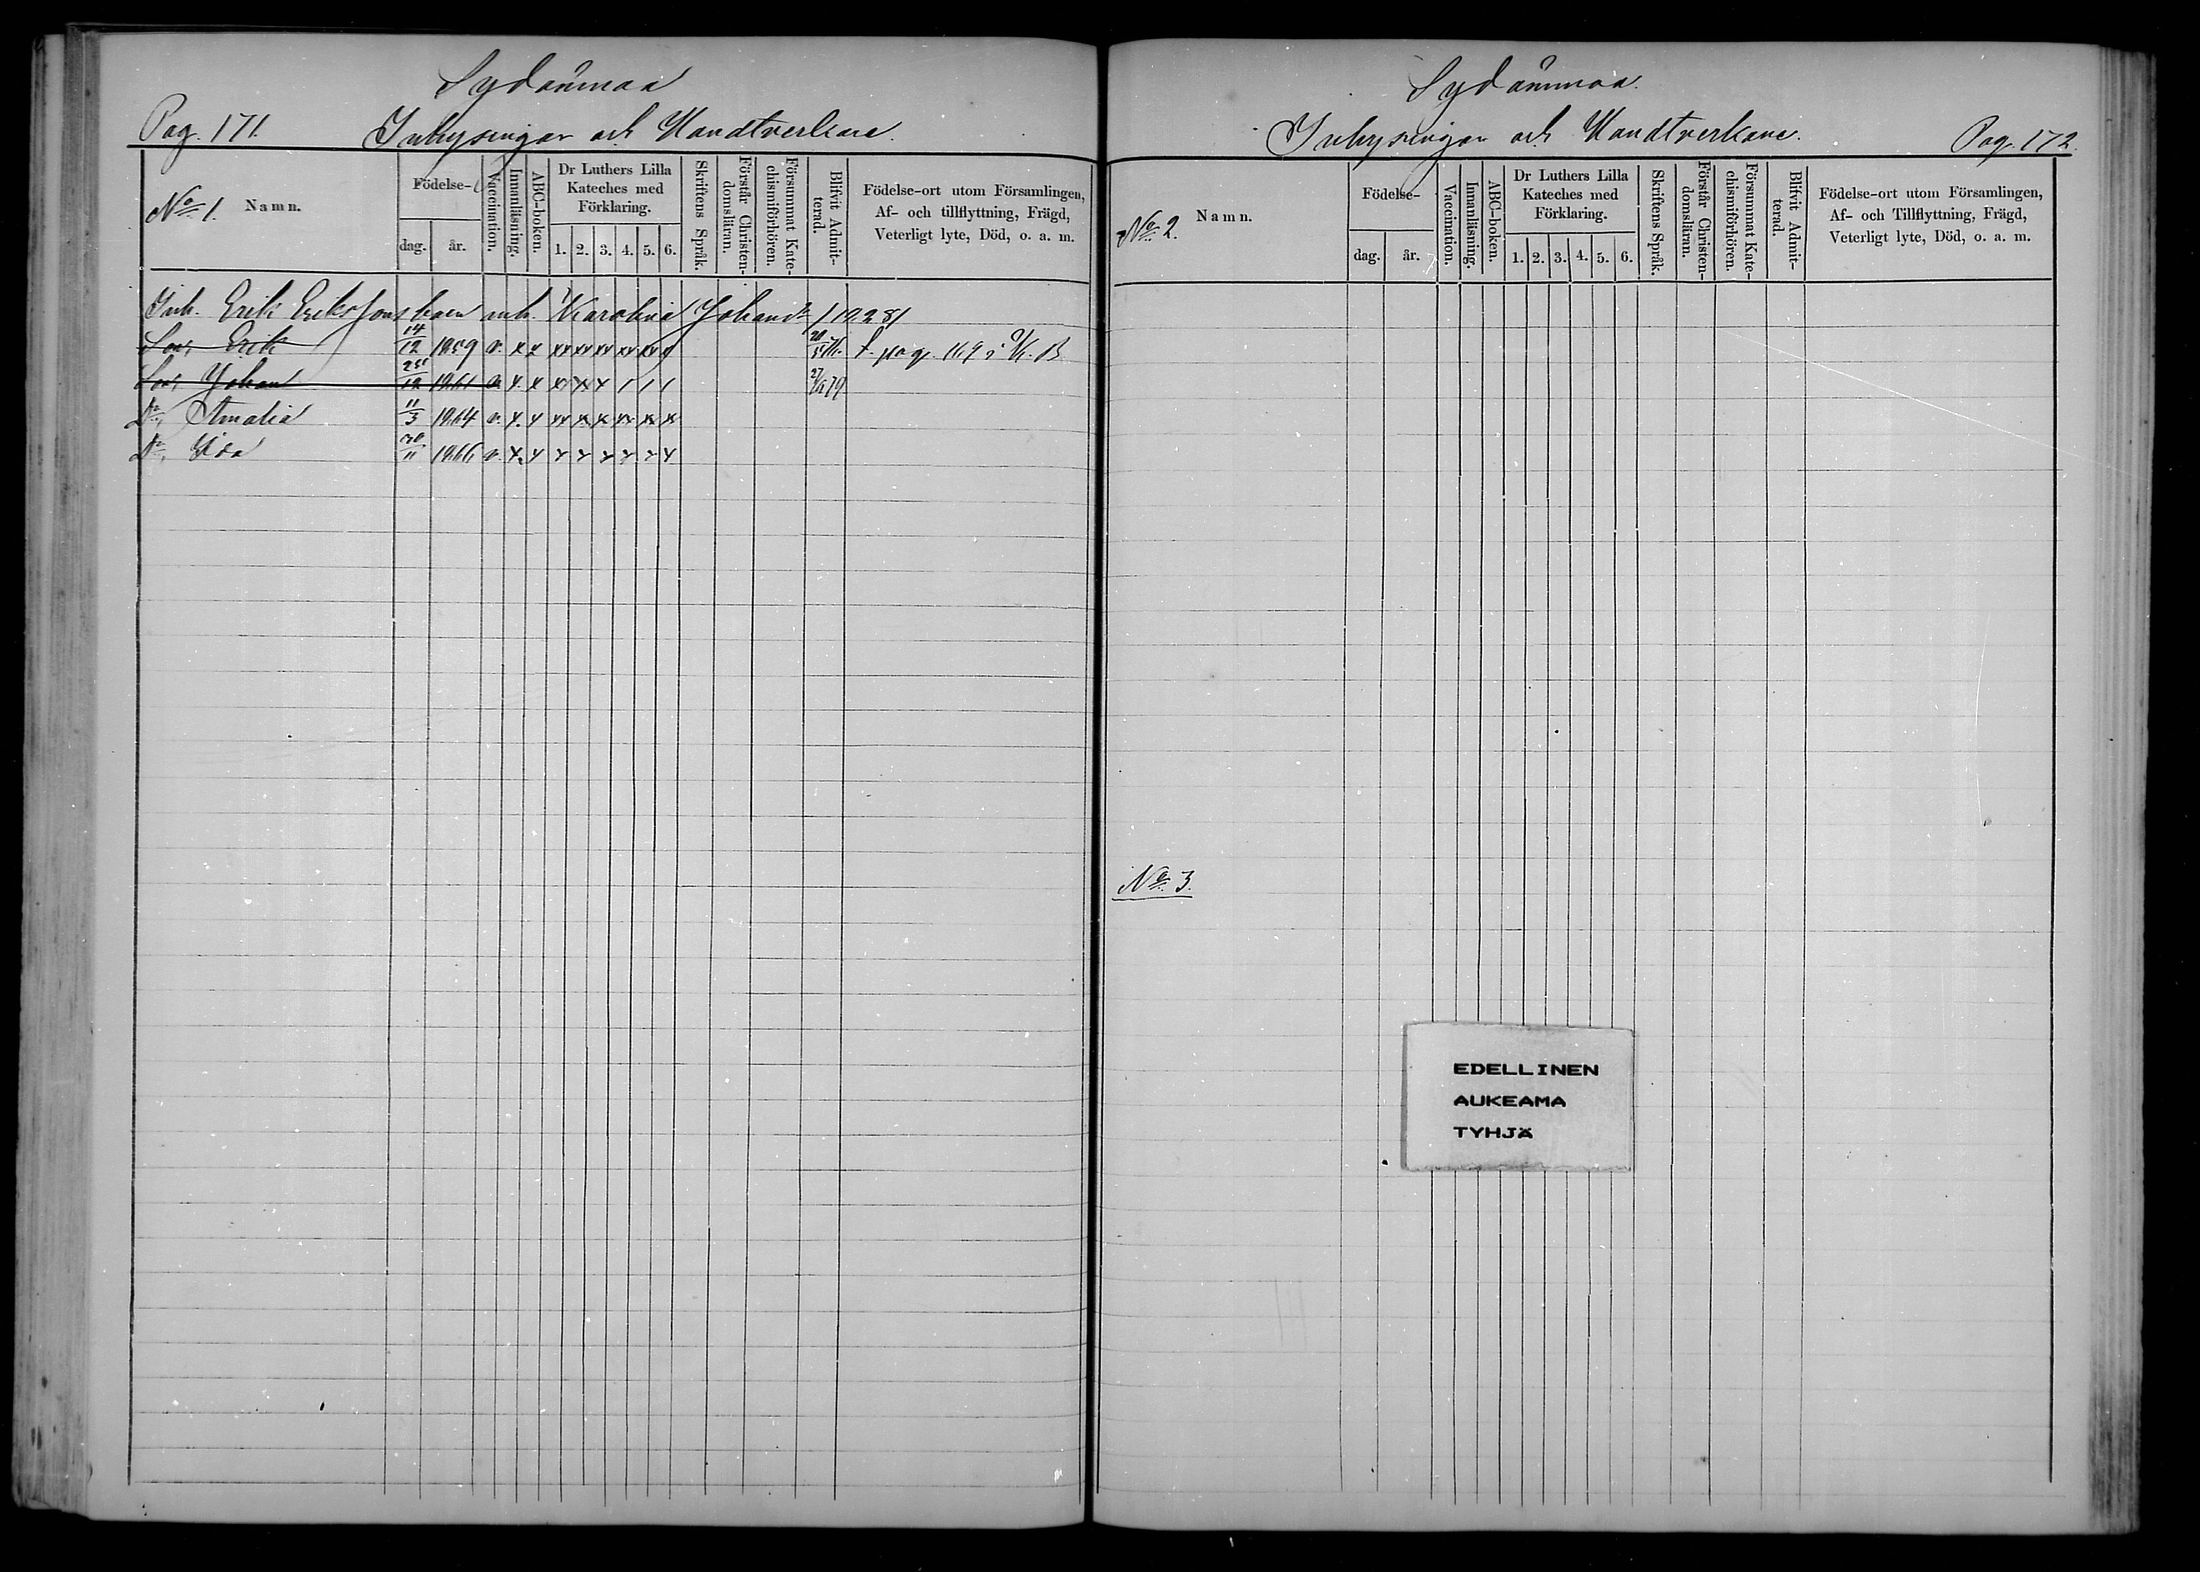 Sydänmaa
Pag. 171. Inhysingar och Handtverkare.
No 1. Namn.
Födelse-
dag. år.
Vaccination.
Innanläsning.
ABC-boken.
Dr Luthers Lilla
Kateches med
Förklaring.
1. 2. 3. 4. 5. 6.
Skriftens Språk.
Förstår Christen-
domsläran.
Försummat Kate-
chismiförhören.
Blifvit Admit-
terad.
Födelse-ort utom Församlingen,
Af- och tillflyttning, Frägd,
Veterligt lyte, Död, o. a. m.
Inh. Erik Erikssons barn Karolina Johansd
Son Erik 14/12 1859 v. x x xx xx xx xx xx pag. 169 i K. B.
Son Johan 12 1861 v. x x xx x x 1 1 1 79
Dr. Amalia 11/3 1864 v. x x xx x x xx x x
Dr. Ida 1866 v. x x x x x x x x
Sydänmaa.
Inhysingar och Handtverkare. Pag. 172.
No 2. Namn.
Födelse-
dag. år.
Vaccination.
Innanläsning.
ABC-boken.
Dr Luthers Lilla
Kateches med
Förklaring.
1. 2. 3. 4. 5. 6.
Skriftens Språk.
Förstår Christen-
domsläran.
Försummat Kate-
chismiförhören.
Blifvit Admit-
terad.
Födelse-ort utom Församlingen,
Af- och Tillflyttning, Frägd,
Veterligt lyte, Död, o. a. m.
No 3.
EDELLINEN
AUKEAMA
TYHJÄ